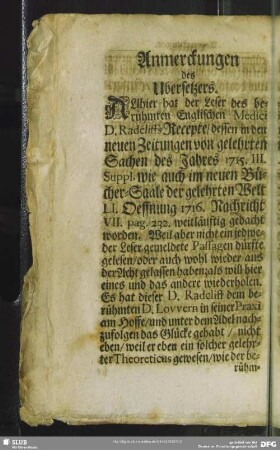 Anmerckungen
des
Ubersetzers.
Allhier hat der Leser des be-
rühmten Englischen Medici
D. Radcliffs Recepte / dessen in den
neuen Zeitungen von gelehrten
Sachen des Jahres 1715. III.
Suppl. wie auch im neuen Bü-
cher-Saale der gelehrten Welt
LI. Oeffnung 1716. Nachricht
VII. pag. 232. weitläufftig gedacht
worden. Weil aber nicht ein jedwe-
der Leser gemeldete Passagen dürffte
gelesen / oder auch wohl wieder aus
der Acht gelassen haben / als will hier
eines und das andere wiederholen.
Es hat dieser D. Radcliff dem be-
rühmten D. Lovvern in seiner Praxi
am Hoffe / und unter dem Adel nach-
zufolgen das Glücke gehabt / nicht
eben / weil er eben ein solcher gelehr-
ter Theoreticus gewesen / wie der be-
rühm-
SLUB
DFG